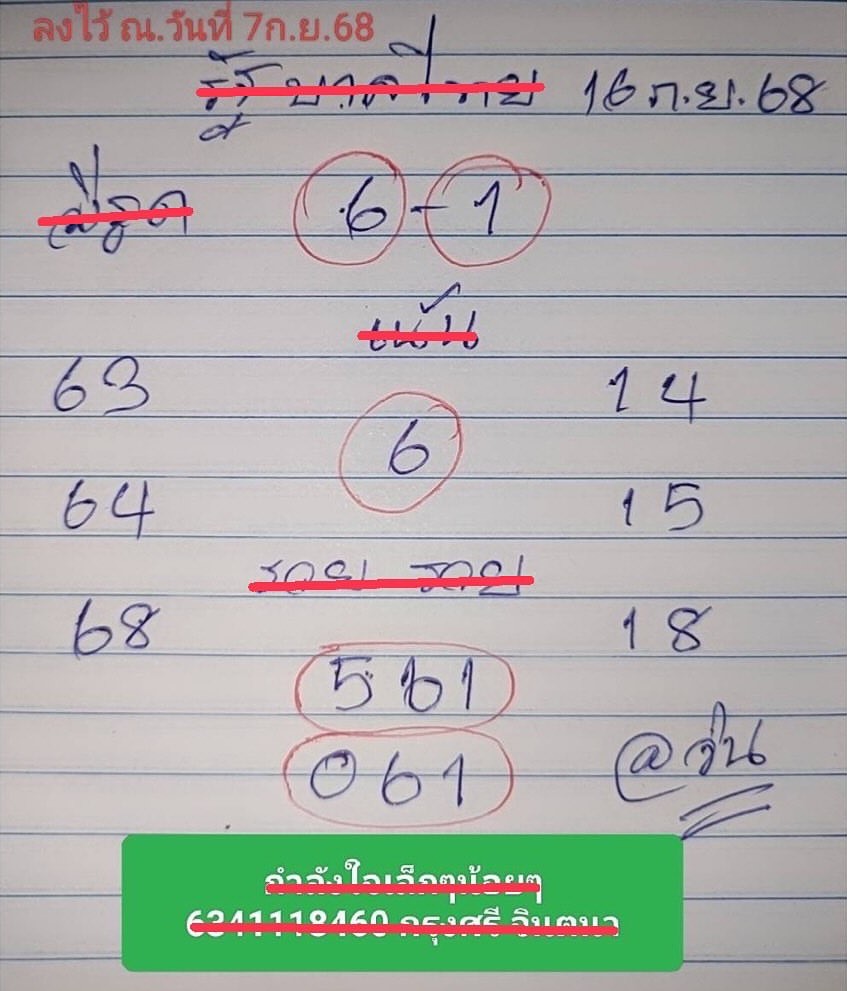 ลงไว้ ณ.วันที่ 7ก.ย.68
16 ก.ย. 68
6 - 1
เน้น
63 14
6
64 15
68 18
561
061
@วุ่น
กำลังใจเล็กๆน้อยๆ
6341118460 กรุงศรี จินตนา